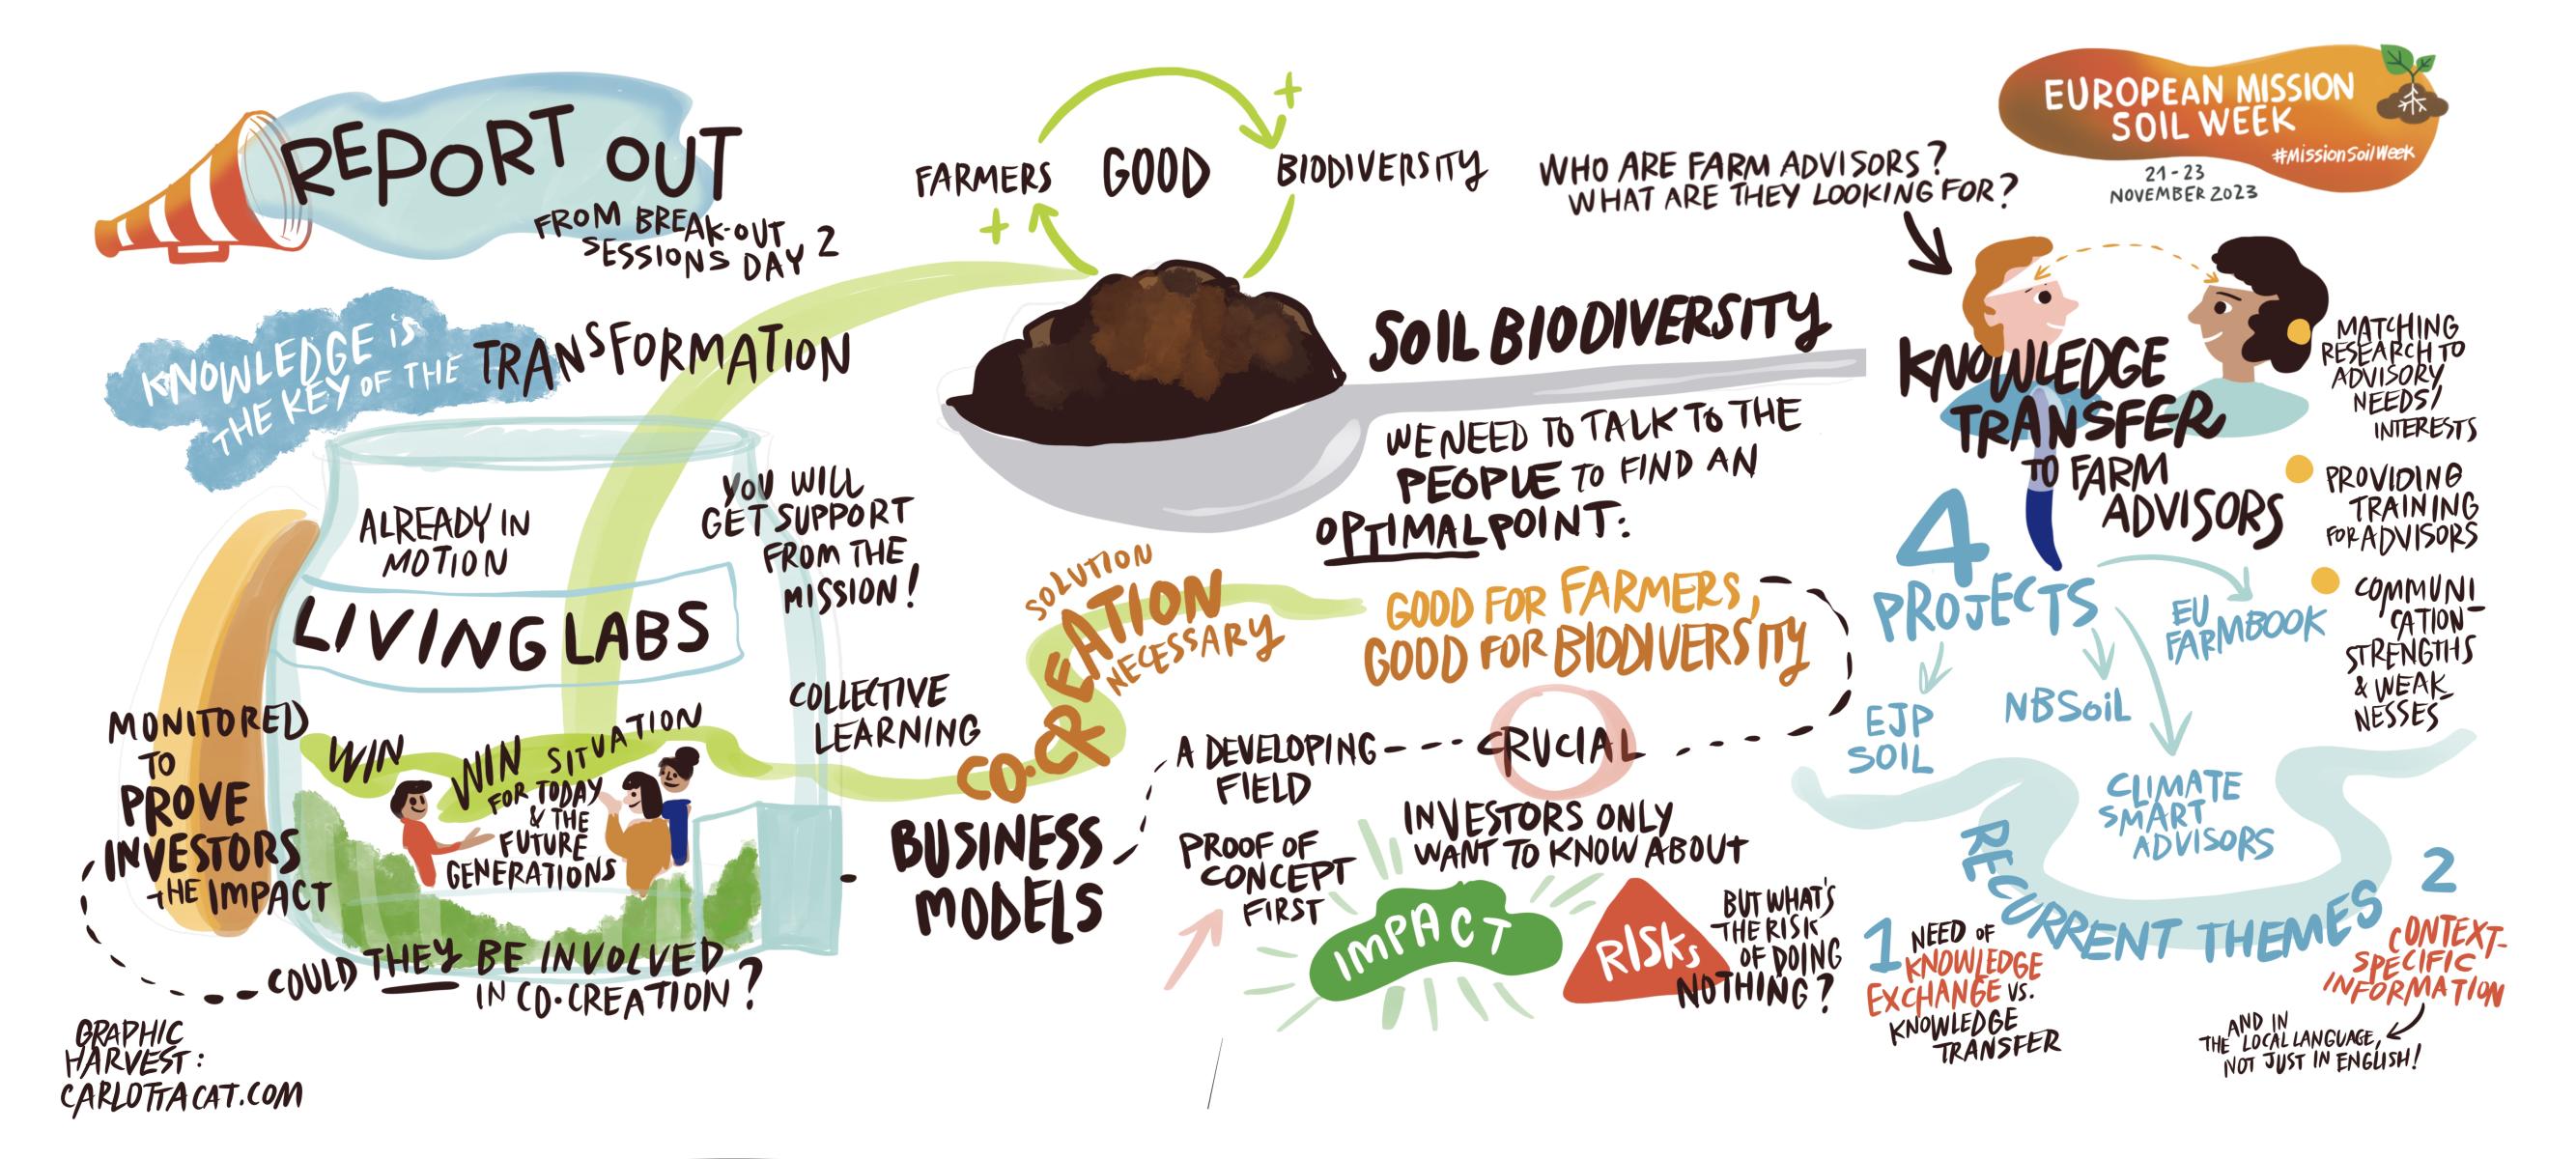 REPORT OUT
FROM BREAK-OUT
SESSIONS DAY 2
KNOWLEDGE IS
THE KEY OF THE TRANSFORMATION
ALREADY IN
MOTION
LIVING LABS
YOU WILL
GET SUPPORT
FROM THE
MISSION!
COLLECTIVE
LEARNING
WIN WIN SITUATION
FOR TODAY
& THE
FUTURE
GENERATIONS
MONITORED
TO
PROVE
INVESTORS
THE IMPACT
COULD THEY BE INVOLVED
IN CO-CREATION?
GRAPHIC
HARVEST:
CARLOTTACAT.COM
FARMERS
+
GOOD
+
BIODIVERSITY
SOIL BIODIVERSITY
WE NEED TO TALK TO THE
PEOPLE TO FIND AN
OPTIMAL POINT:
GOOD FOR FARMERS,
GOOD FOR BIODIVERSITY
SOLUTION
CO-CREATION
NECESSARY
BUSINESS
MODELS
A DEVELOPING
FIELD
CRUCIAL
PROOF OF
CONCEPT
FIRST
INVESTORS ONLY
WANT TO KNOW ABOUT
IMPACT
RISKS
BUT WHAT'S
THE RISK
OF DOING
NOTHING?
EUROPEAN MISSION
SOIL WEEK
#MissionSoilWeek
21-23
NOVEMBER 2023
WHO ARE FARM ADVISORS?
WHAT ARE THEY LOOKING FOR?
KNOWLEDGE
TRANSFER
TO FARM
ADVISORS
MATCHING
RESEARCH TO
ADVISORY
NEEDS/
INTERESTS
PROVIDING
TRAINING
FOR ADVISORS
COMMUNI
CATION
STRENGTHS
& WEAK-
NESSES
4
PROJECTS
EJP
SOIL
NBSOIL
CLIMATE
SMART
ADVISORS
EU
FARMBOOK
RECURRENT THEMES
1 NEED OF
KNOWLEDGE
EXCHANGE VS.
KNOWLEDGE
TRANSFER
2
CONTEXT-
SPECIFIC
INFORMATION
AND IN
THE LOCAL LANGUAGE,
NOT JUST IN ENGLISH!